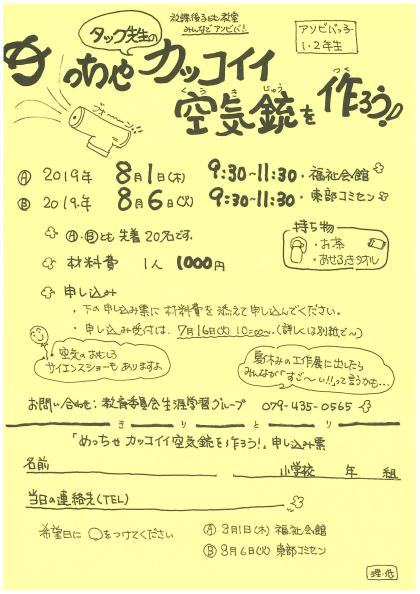 放課後子ども教室
みんなでアソビバ!
アソビバっ子
1・2年生
タック先生の
めっちゃ カッコイイ
くうき じゅう つく
空気銃を作ろう!
Ⓐ 2019年 8月1日(木) 9:30~11:30・福祉会館
Ⓑ 2019年 8月6日(火) 9:30~11:30・東部コミセン
Ⓐ・Ⓑとも 先着20名です。
持ち物
・お茶
・あせふきタオル
材料費 1人 1000円
申し込み
・下の申し込み票に材料費を添えて申し込んでください。
・申し込み受付は、7月16日(火) 10:00~。(詳しくは別紙で~)
空気のおもしろ
サイエンスショーもありますよ
夏休みの工作展に出したら
みんなが「すご~い!!」って言うかも…
お問い合わせ:教育委員会生涯学習グループ 079-435-0565
きりとり
「めっちゃ カッコイイ空気銃を作ろう!」申し込み票
名前 小学校 年 組
当日の連絡先(TEL)
希望日に ○をつけてください
Ⓐ 8月1日(木) 福祉会館
Ⓑ 8月6日(火) 東部コミセン